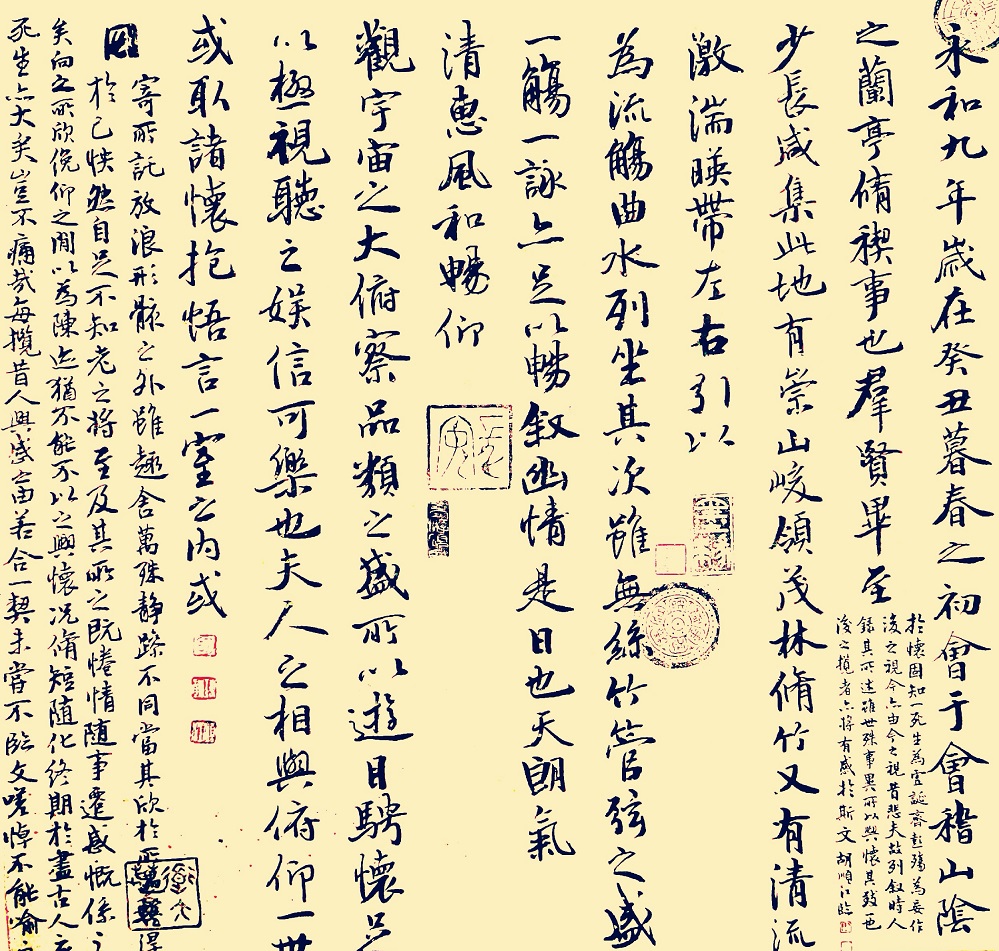 永和九年歲在癸丑暮春之初會于會稽山陰
之蘭亭脩稧事也羣賢畢至
少長咸集此地有崇山峻領茂林脩竹又有清流
激湍暎帶左右引以
為流觴曲水列坐其次雖無絲竹管弦之盛
一觴一詠亦足以暢敘幽情是日也天朗氣
清惠風和暢仰
觀宇宙之大俯察品類之盛所以遊目騁懷足
以極視聽之娛信可樂也夫人之相與俯仰一世
或取諸懷抱悟言一室之內或
寄所託放浪形骸之外雖趣舍萬殊靜躁不同當其欣於所遇暫得
於己怏然自足不知老之將至及其所之既惓情隨事遷感慨係之
矣向之所欣俛仰之閒以為陳迹猶不能不以之興懷況脩短隨化終期於盡古人云
死生亦大矣豈不痛哉每攬昔人興感之由若合一契未嘗不臨文嗟悼不能喻之
於懷固知一死生為虛誕齊彭殤為妄作
後之視今亦由今之視昔悲夫故列敘時人
錄其所述雖世殊事異所以興懷其致一也
後之攬者亦將有感於斯文 胡順江臨